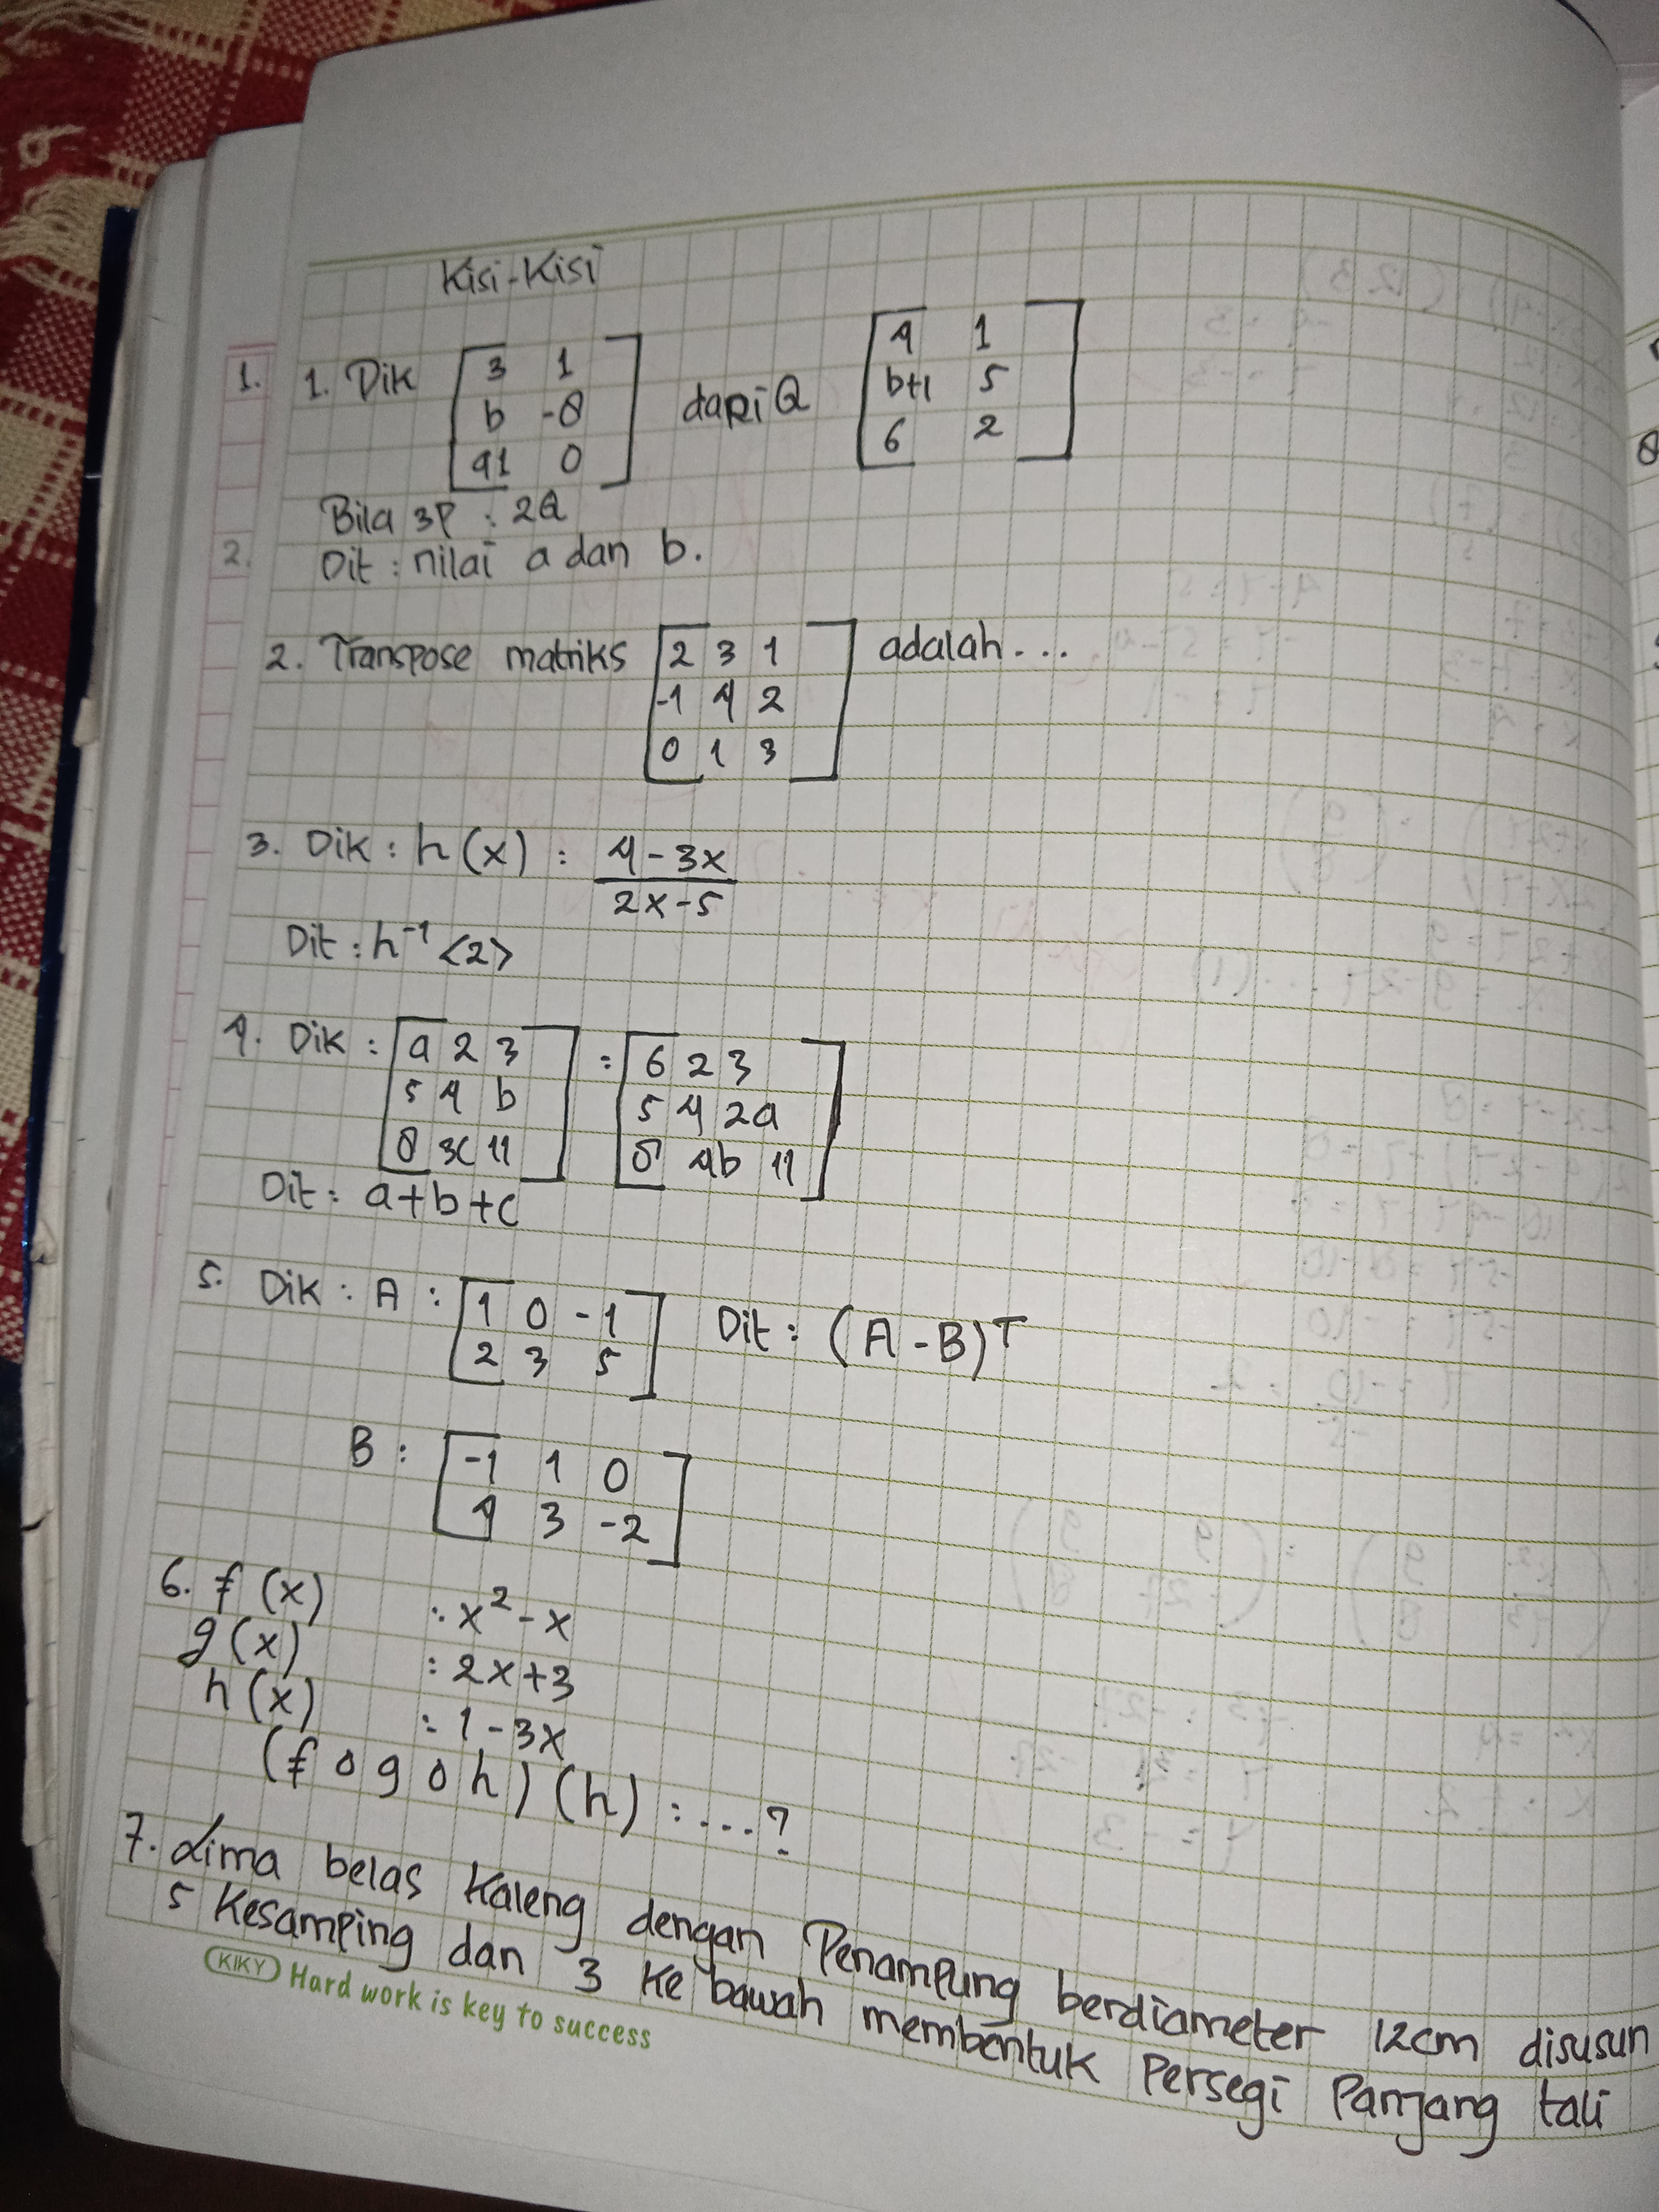 Kisi-Kisi
1. 1. Dik [3 1 dari Q [4 1
b -8 b+1 5
a1 0] 6 2]
Bila 3P : 2Q
2. Dit : nilai a dan b.
2. Transpose matriks [2 3 1 adalah...
-1 4 2
0 1 3]
3. Dik : h(x) : 4-3x
2x-5
Dit : h⁻¹ <2>
4. Dik : [a 2 3 : [6 2 3
5 4 b 5 4 2a
8 3c 11] 8 4b 11]
Dit : a+b+c
5. Dik : A : [1 0 -1 Dit : (A-B)ᵀ
2 3 5]
B : [-1 1 0
4 3 -2]
6. f (x) : x²-x
g (x) : 2x+3
h (x) : 1-3x
(f o g o h) (h) : ...?
7. Lima belas Kaleng dengan Penampung berdiameter 12cm disusun
5 Kesamping dan 3 Ke bawah membentuk Persegi Panjang tali
KIKY Hard work is key to success